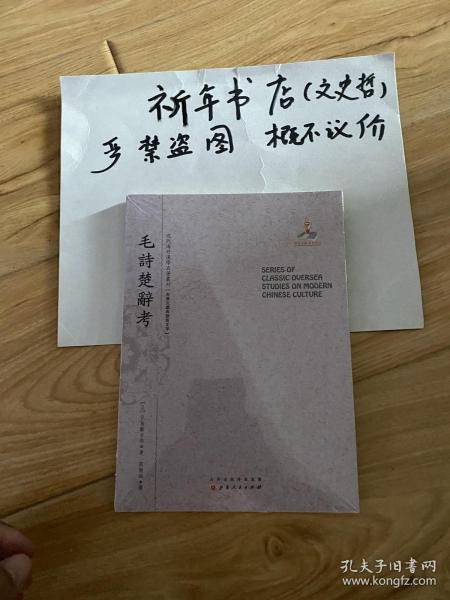 祈年书店(文史哲)
严禁盗图 概不议价
毛詩楚辭考
近代海外漢學名著叢刊
SERIES OF
CLASSIC OVERSEA
STUDIES ON MODERN
CHINESE CULTURE
山西人民出版社
孔夫子旧书网
www.kongfz.com